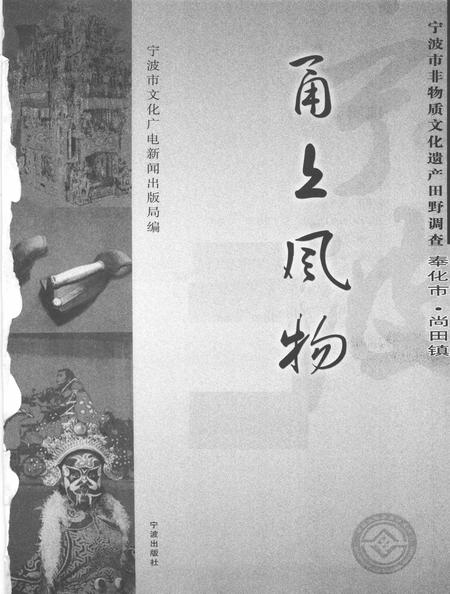 宁波市非物质文化遗产田野调查 奉化市·尚田镇
甬上风物
宁波市文化广电新闻出版局编
宁波出版社